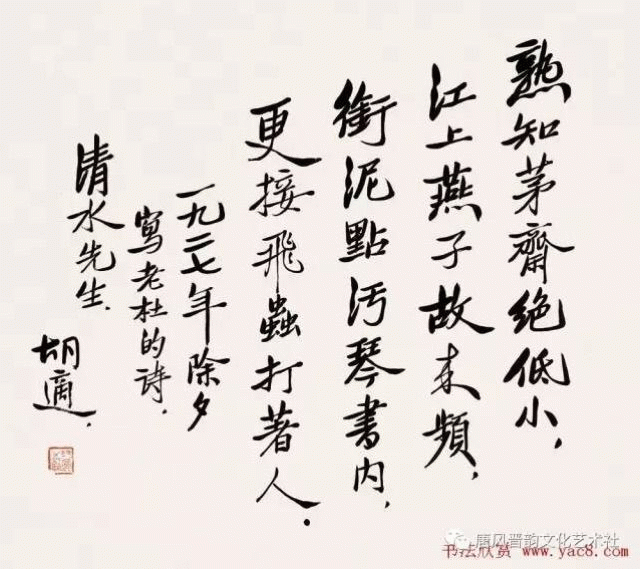 熟知茅齋絕低小，
江上燕子故來頻，
銜泥點汚琴書内，
更接飛蟲打著人．
一九二七年除夕
寫老杜的詩．
清水先生．
胡適．
唐风晋韵文化艺术社
书法欣赏 www.yac8.com